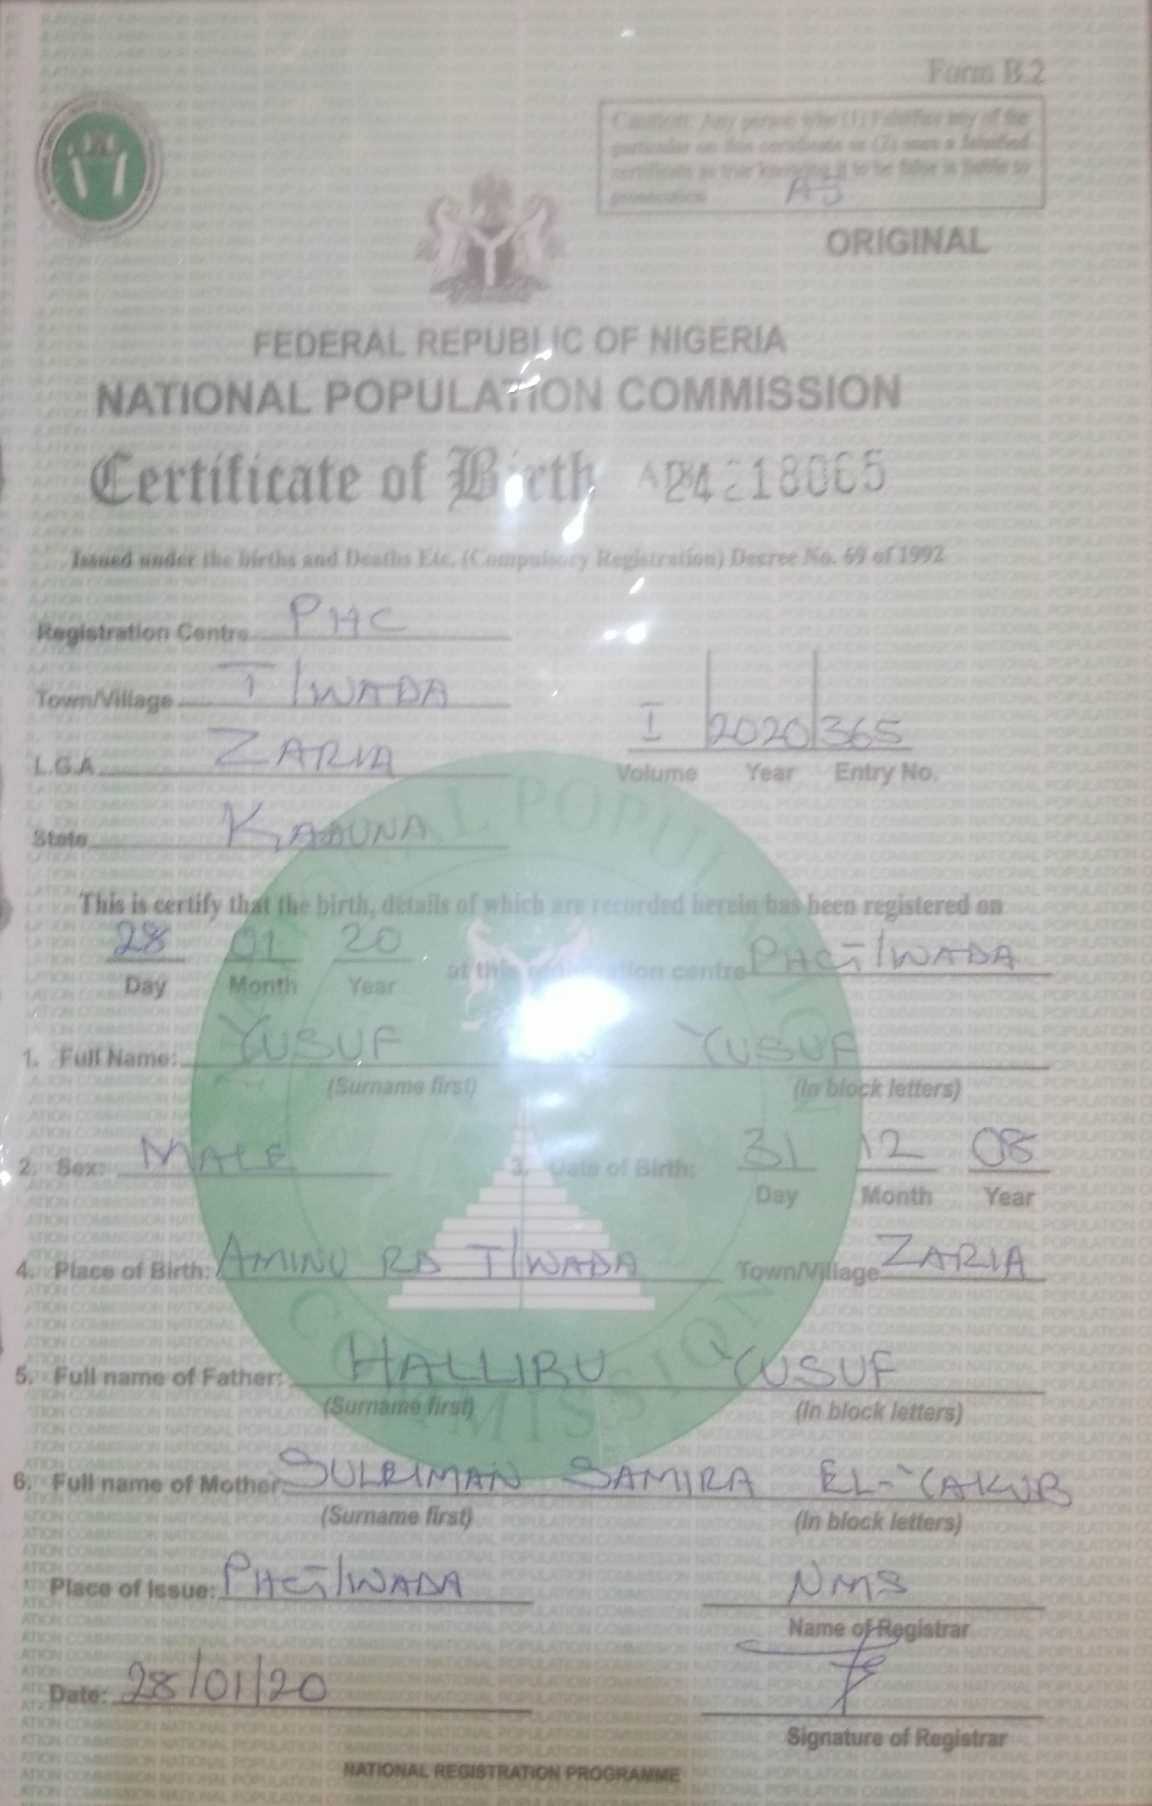 Form B.2
Caution: Any person who (1) Falsifies any of the
particular on this certificate or (2) uses a falsified
certificate as true knowing it to be false is liable to
prosecution
ORIGINAL
FEDERAL REPUBLIC OF NIGERIA
NATIONAL POPULATION COMMISSION
Certificate of Birth
Issued under the births and Deaths Etc. (Compulsory Registration) Decree No. 69 of 1992
Registration Centre PHC
Town/Village T/WADA
L.G.A ZARIA
I 2020 365
Volume Year Entry No.
State KADUNA
This is certify that the birth, details of which are recorded herein has been registered on
28 01 20 at this registration centre PHC T/WADA
Day Month Year
1. Full Name: YUSUF YUSUF
(Surname first) (In block letters)
2. Sex: MALE 3. Date of Birth: 31 12 08
Day Month Year
4. Place of Birth: AMINU RD T/WADA Town/Village ZARIA
5. Full name of Father: HALLIRU YUSUF
(Surname first) (In block letters)
6. Full name of Mother SULEIMAN SAMIRA EL-YAKUB
(Surname first) (In block letters)
Place of Issue: PHC T/WADA NMS
Name of Registrar
Date: 28/01/20
Signature of Registrar
NATIONAL REGISTRATION PROGRAMME